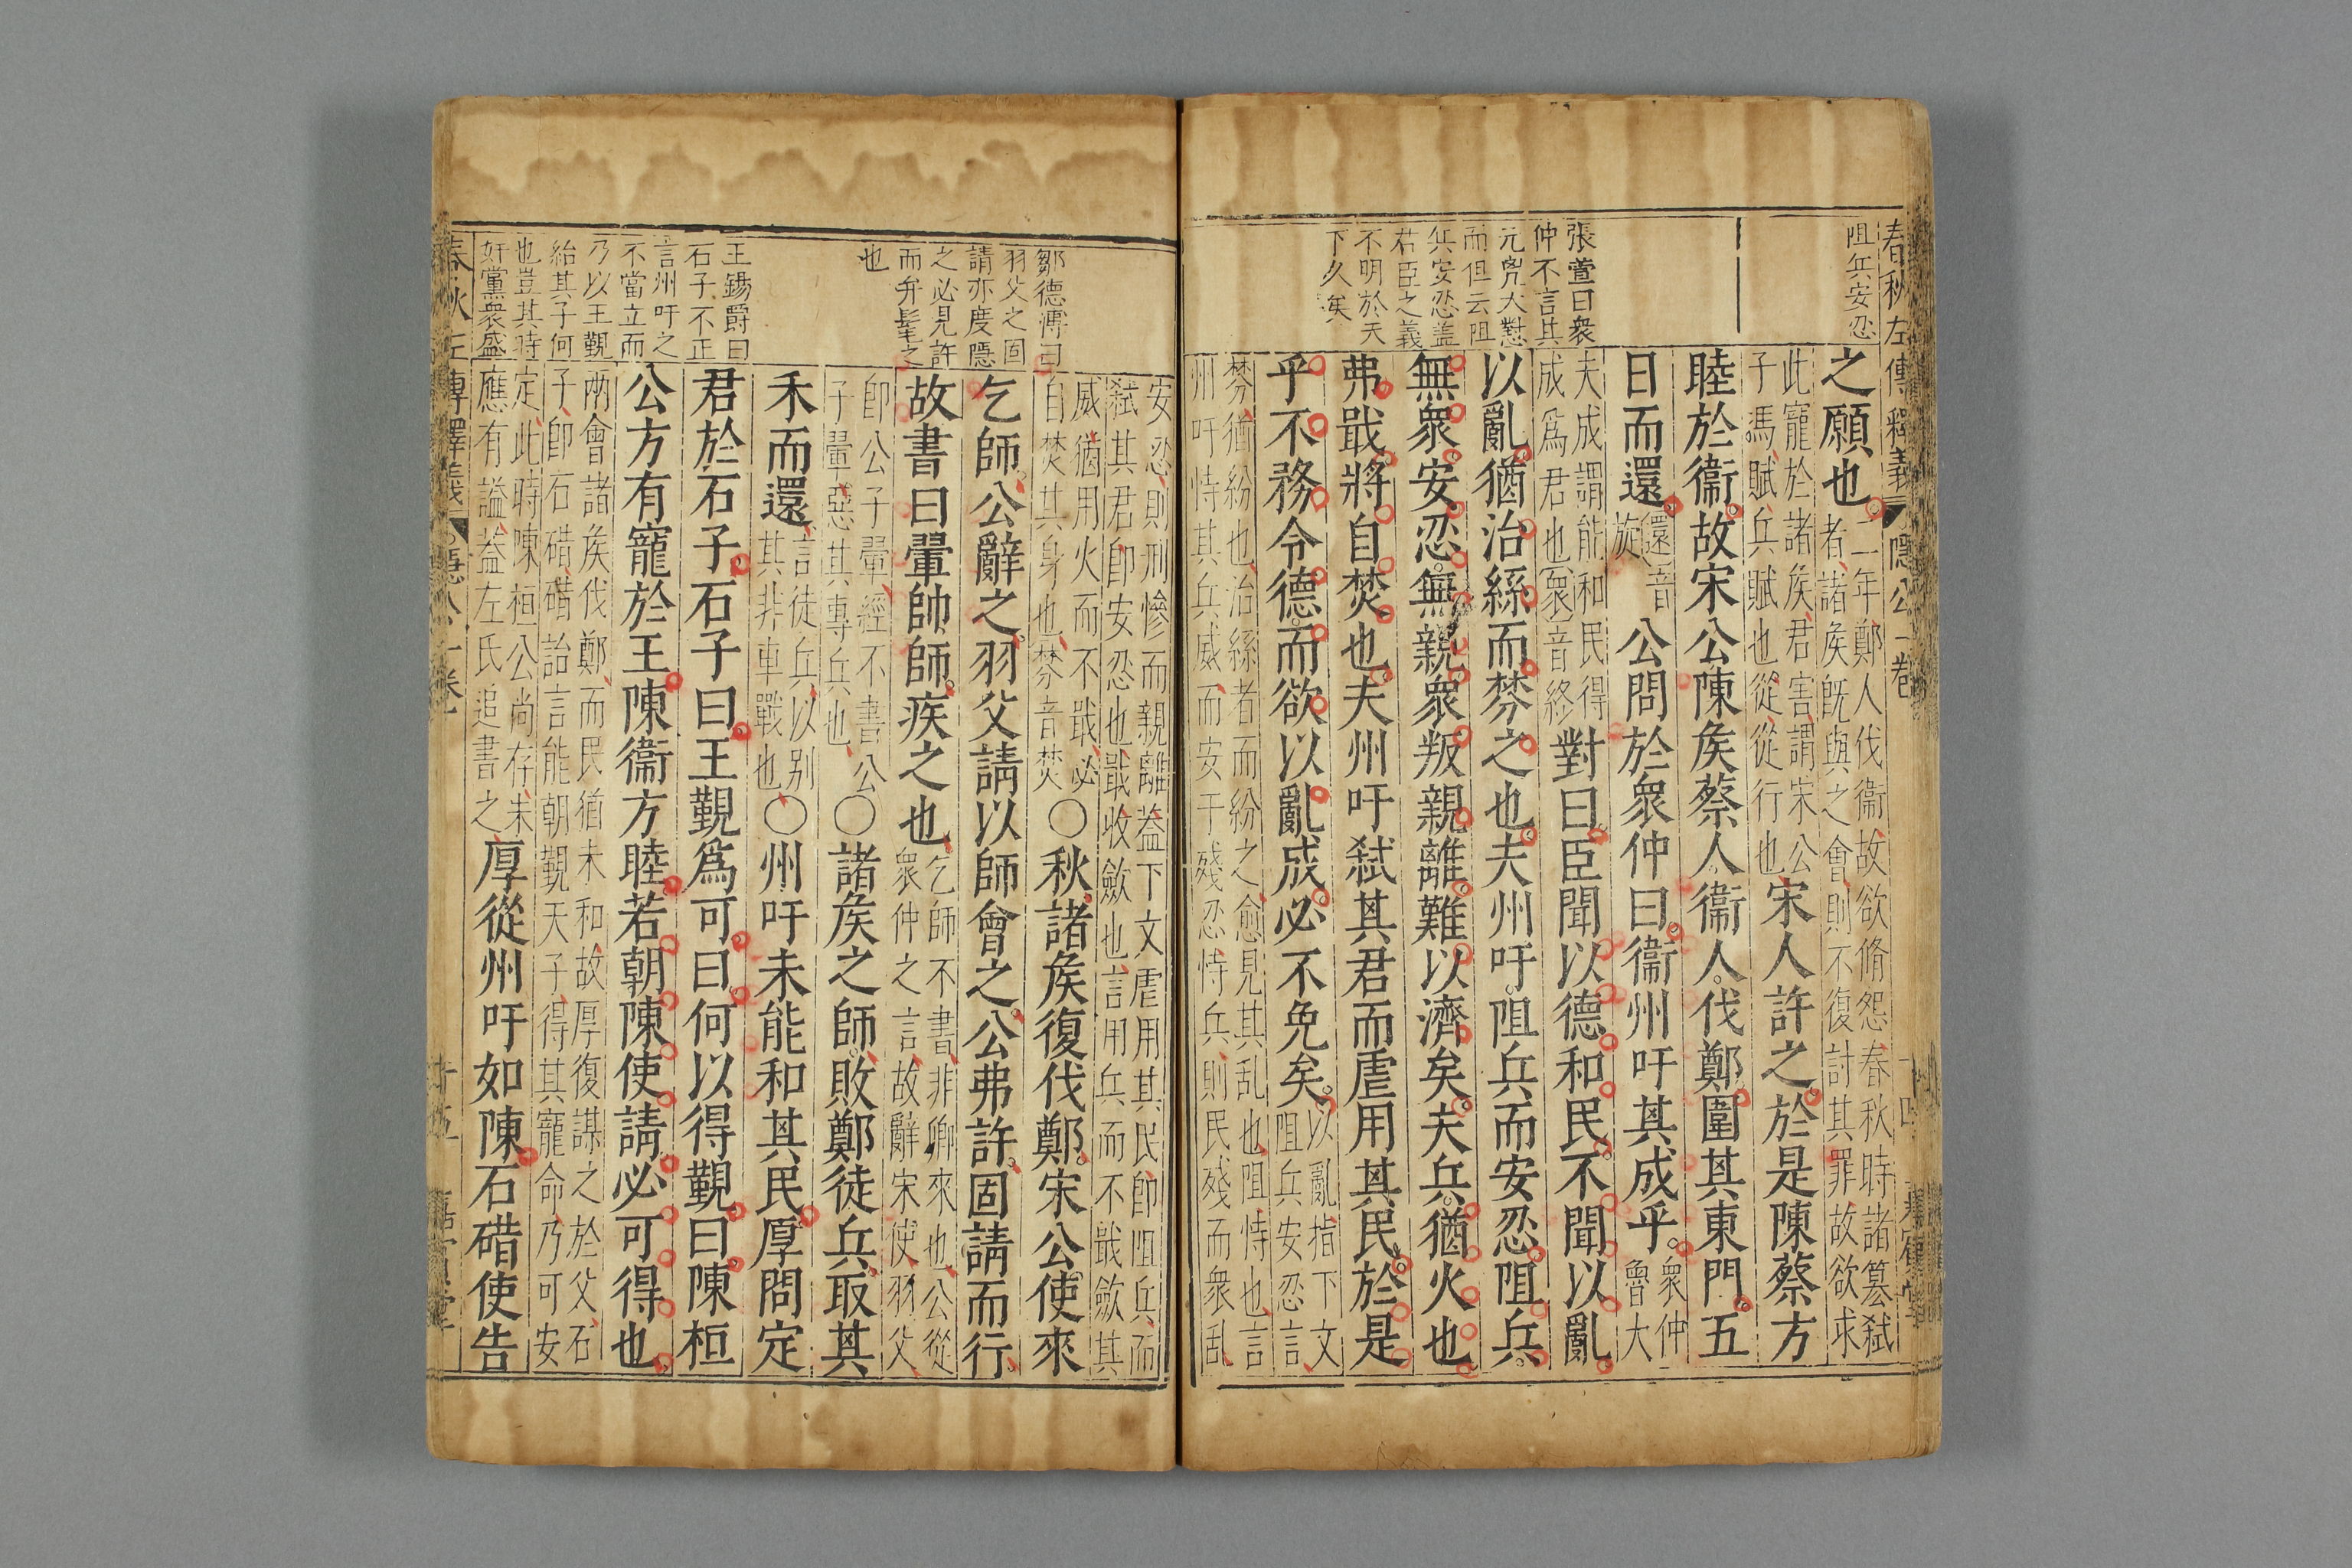 春秋左傳釋義 隱公一卷
阻兵安忍
張萱曰衆
仲不言其
元兇大懟
而但云阻
兵安忍盖
君臣之義
不明於天
下久矣
之願也二年鄭人伐衞故欲脩怨春秋時諸篡弑
者諸矦旣與之會則不復討其罪故欲求
此寵於諸矦君害謂宋公
子馮賦兵賦也從從行也宋人許之於是陳蔡方
睦於衞故宋公陳矦蔡人衞人伐鄭圍其東門五
日而還還音
旋公問於衆仲曰衞州吁其成乎衆仲
魯大
夫成謂能和民得
成爲君也衆音終對曰臣聞以德和民不聞以亂
以亂猶治絲而棼之也夫州吁阻兵而安忍阻兵
無衆安忍無親衆叛親離難以濟矣夫兵猶火也
弗戢將自焚也夫州吁弑其君而虐用其民於是
乎不務令德而欲以亂成必不免矣以亂指下文
阻兵安忍言
棼猶紛也治絲者而紛之愈見其乱也阻恃也言
州吁恃其兵威而安于殘忍恃兵則民殘而衆乱
鄒德溥曰
羽父之固
請亦度隱
之必見許
而弁髦之
也
王錫爵曰
石子不正
言州吁之
不當立而
乃以王覲
紿其子何
也豈其時
奸黨衆盛
安忍則刑慘而親離盖下文虐用其民卽阻兵而
弑其君卽安忍也戢收斂也言用兵而不戢斂其
威猶用火而不戢必
自焚其身也棼音焚〇秋諸矦復伐鄭宋公使來
乞師公辭之羽父請以師會之公弗許固請而行
故書曰翬帥師疾之也乞師不書非卿來也公從
衆仲之言故辭宋使羽父
卽公子翬經不書公
子翬惡其專兵也〇諸矦之師敗鄭徒兵取其
禾而還言徒兵以别
其非車戰也〇州吁未能和其民厚問定
君於石子石子曰王覲爲可曰何以得覲曰陳桓
公方有寵於王陳衞方睦若朝陳使請必可得也
兩會諸矦伐鄭而民猶未和故厚復謀之於父石
子卽石碏碏詒言能朝覲天子得其寵命乃可安
定此時陳桓公尚存未
應有謚盖左氏追書之厚從州吁如陳石碏使告